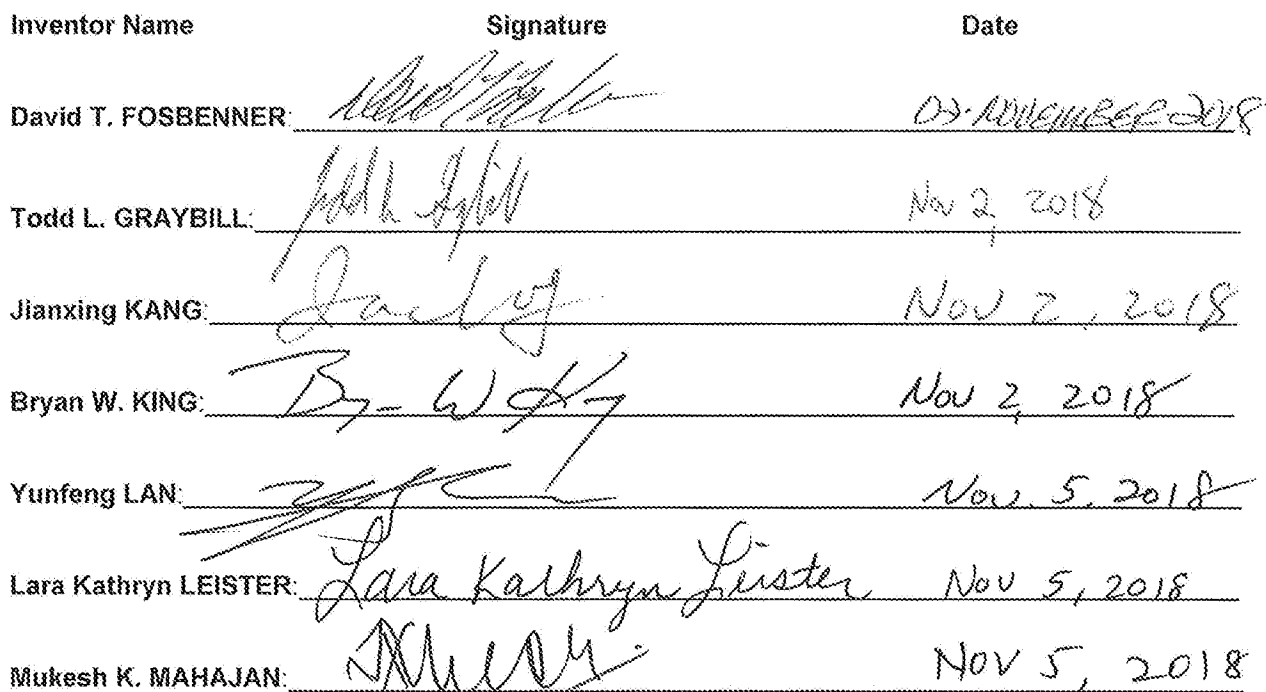 Inventor Name Signature Date
David T. FOSBENNER: 02-NOVEMBER 2018
Todd L. GRAYBILL: Todd L Graybill Nov 2, 2018
Jianxing KANG: Nov 2, 2018
Bryan W. KING: Bryan W King Nov 2, 2018
Yunfeng LAN: Nov. 5, 2018
Lara Kathryn LEISTER: Lara Kathryn Leister Nov 5, 2018
Mukesh K. MAHAJAN: Nov 5, 2018